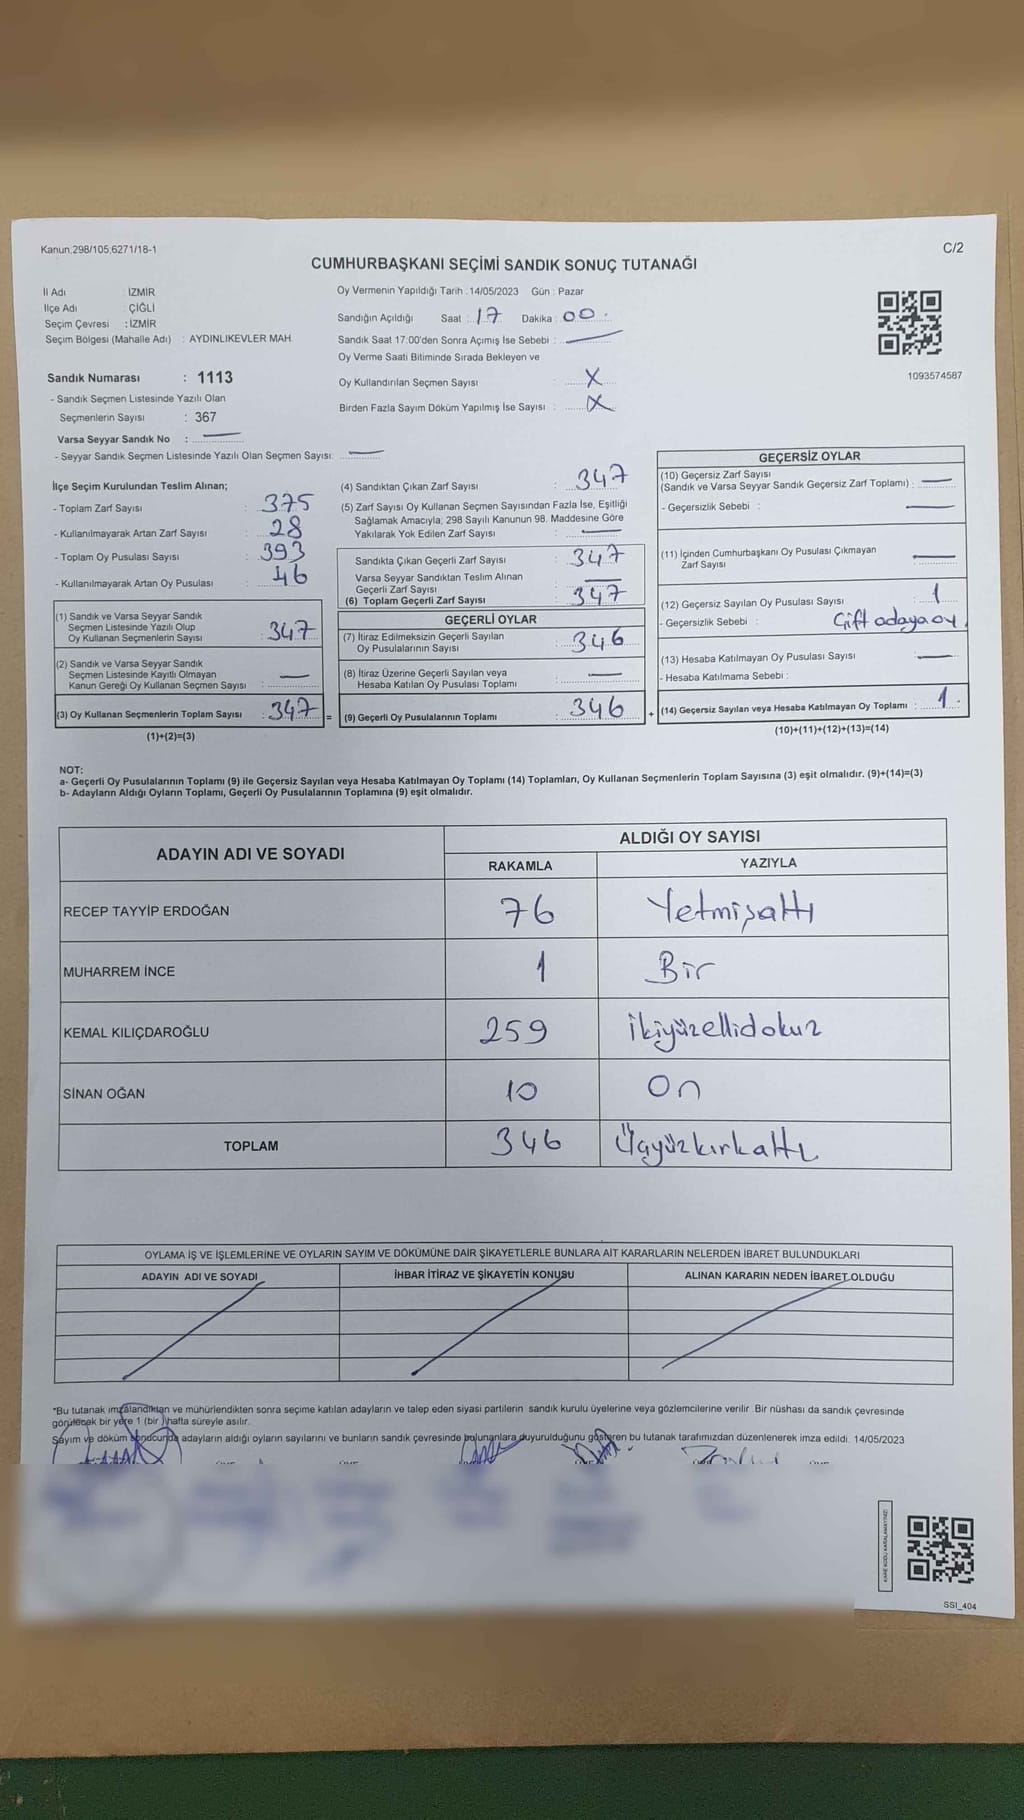 Kanun;298/105;6271/18-1
C/2
CUMHURBAŞKANI SEÇİMİ SANDIK SONUÇ TUTANAĞI
İl Adı : İZMİR
İlçe Adı : ÇİĞLİ
Seçim Çevresi : İZMİR
Seçim Bölgesi (Mahalle Adı) : AYDINLIKEVLER MAH
Oy Vermenin Yapıldığı Tarih : 14/05/2023 Gün : Pazar
Sandığın Açıldığı Saat : 17 Dakika : 00
Sandık Saat 17:00'den Sonra Açımış İse Sebebi : —
Oy Verme Saati Bitiminde Sırada Bekleyen ve
Oy Kullandırılan Seçmen Sayısı : X
Birden Fazla Sayım Döküm Yapılmış İse Sayısı : X
1093574587
Sandık Numarası : 1113
- Sandık Seçmen Listesinde Yazılı Olan
Seçmenlerin Sayısı : 367
Varsa Seyyar Sandık No : —
- Seyyar Sandık Seçmen Listesinde Yazılı Olan Seçmen Sayısı: —
İlçe Seçim Kurulundan Teslim Alınan;
- Toplam Zarf Sayısı : 375
- Kullanılmayarak Artan Zarf Sayısı : 28
- Toplam Oy Pusulası Sayısı : 393
- Kullanılmayarak Artan Oy Pusulası : 46
(1) Sandık ve Varsa Seyyar Sandık
Seçmen Listesinde Yazılı Olup
Oy Kullanan Seçmenlerin Sayısı : 347
(2) Sandık ve Varsa Seyyar Sandık
Seçmen Listesinde Kayıtlı Olmayan
Kanun Gereği Oy Kullanan Seçmen Sayısı : —
(3) Oy Kullanan Seçmenlerin Toplam Sayısı : 347 =
(1)+(2)=(3)
(4) Sandıktan Çıkan Zarf Sayısı : 347
(5) Zarf Sayısı Oy Kullanan Seçmen Sayısından Fazla İse, Eşitliği
Sağlamak Amacıyla; 298 Sayılı Kanunun 98. Maddesine Göre
Yakılarak Yok Edilen Zarf Sayısı : —
Sandıkta Çıkan Geçerli Zarf Sayısı : 347
Varsa Seyyar Sandıktan Teslim Alınan
Geçerli Zarf Sayısı : —
(6) Toplam Geçerli Zarf Sayısı : 347
GEÇERLİ OYLAR
(7) İtiraz Edilmeksizin Geçerli Sayılan
Oy Pusulalarının Sayısı : 346
(8) İtiraz Üzerine Geçerli Sayılan veya
Hesaba Katılan Oy Pusulası Toplamı : —
(9) Geçerli Oy Pusulalarının Toplamı : 346 +
GEÇERSİZ OYLAR
(10) Geçersiz Zarf Sayısı
(Sandık ve Varsa Seyyar Sandık Geçersiz Zarf Toplamı) : —
- Geçersizlik Sebebi : —
(11) İçinden Cumhurbaşkanı Oy Pusulası Çıkmayan
Zarf Sayısı : —
(12) Geçersiz Sayılan Oy Pusulası Sayısı : 1
- Geçersizlik Sebebi : Çift adaya oy
(13) Hesaba Katılmayan Oy Pusulası Sayısı : —
- Hesaba Katılmama Sebebi :
(14) Geçersiz Sayılan veya Hesaba Katılmayan Oy Toplamı : 1
(10)+(11)+(12)+(13)=(14)
NOT:
a- Geçerli Oy Pusulalarının Toplamı (9) ile Geçersiz Sayılan veya Hesaba Katılmayan Oy Toplamı (14) Toplamları, Oy Kullanan Seçmenlerin Toplam Sayısına (3) eşit olmalıdır. (9)+(14)=(3)
b- Adayların Aldığı Oyların Toplamı, Geçerli Oy Pusulalarının Toplamına (9) eşit olmalıdır.
ADAYIN ADI VE SOYADI
ALDIĞI OY SAYISI
RAKAMLA YAZIYLA
RECEP TAYYİP ERDOĞAN 76 Yetmişaltı
MUHARREM İNCE 1 Bir
KEMAL KILIÇDAROĞLU 259 İkiyüzellidokuz
SİNAN OĞAN 10 On
TOPLAM 346 Üçyüzkırkaltı
OYLAMA İŞ VE İŞLEMLERİNE VE OYLARIN SAYIM VE DÖKÜMÜNE DAİR ŞİKAYETLERLE BUNLARA AİT KARARLARIN NELERDEN İBARET BULUNDUKLARI
ADAYIN ADI VE SOYADI İHBAR İTİRAZ VE ŞİKAYETİN KONUSU ALINAN KARARIN NEDEN İBARET OLDUĞU
*Bu tutanak imzalandıktan ve mühürlendikten sonra seçime katılan adayların ve talep eden siyasi partilerin sandık kurulu üyelerine veya gözlemcilerine verilir. Bir nüshası da sandık çevresinde
görülecek bir yere 1 (bir) hafta süreyle asılır.
Sayım ve döküm sonucunda adayların aldığı oyların sayılarını ve bunların sandık çevresinde bulunanlara duyurulduğunu gösteren bu tutanak tarafımızdan düzenlenerek imza edildi. 14/05/2023
KARE KODU KARALAMAYINIZ!
SSI_404